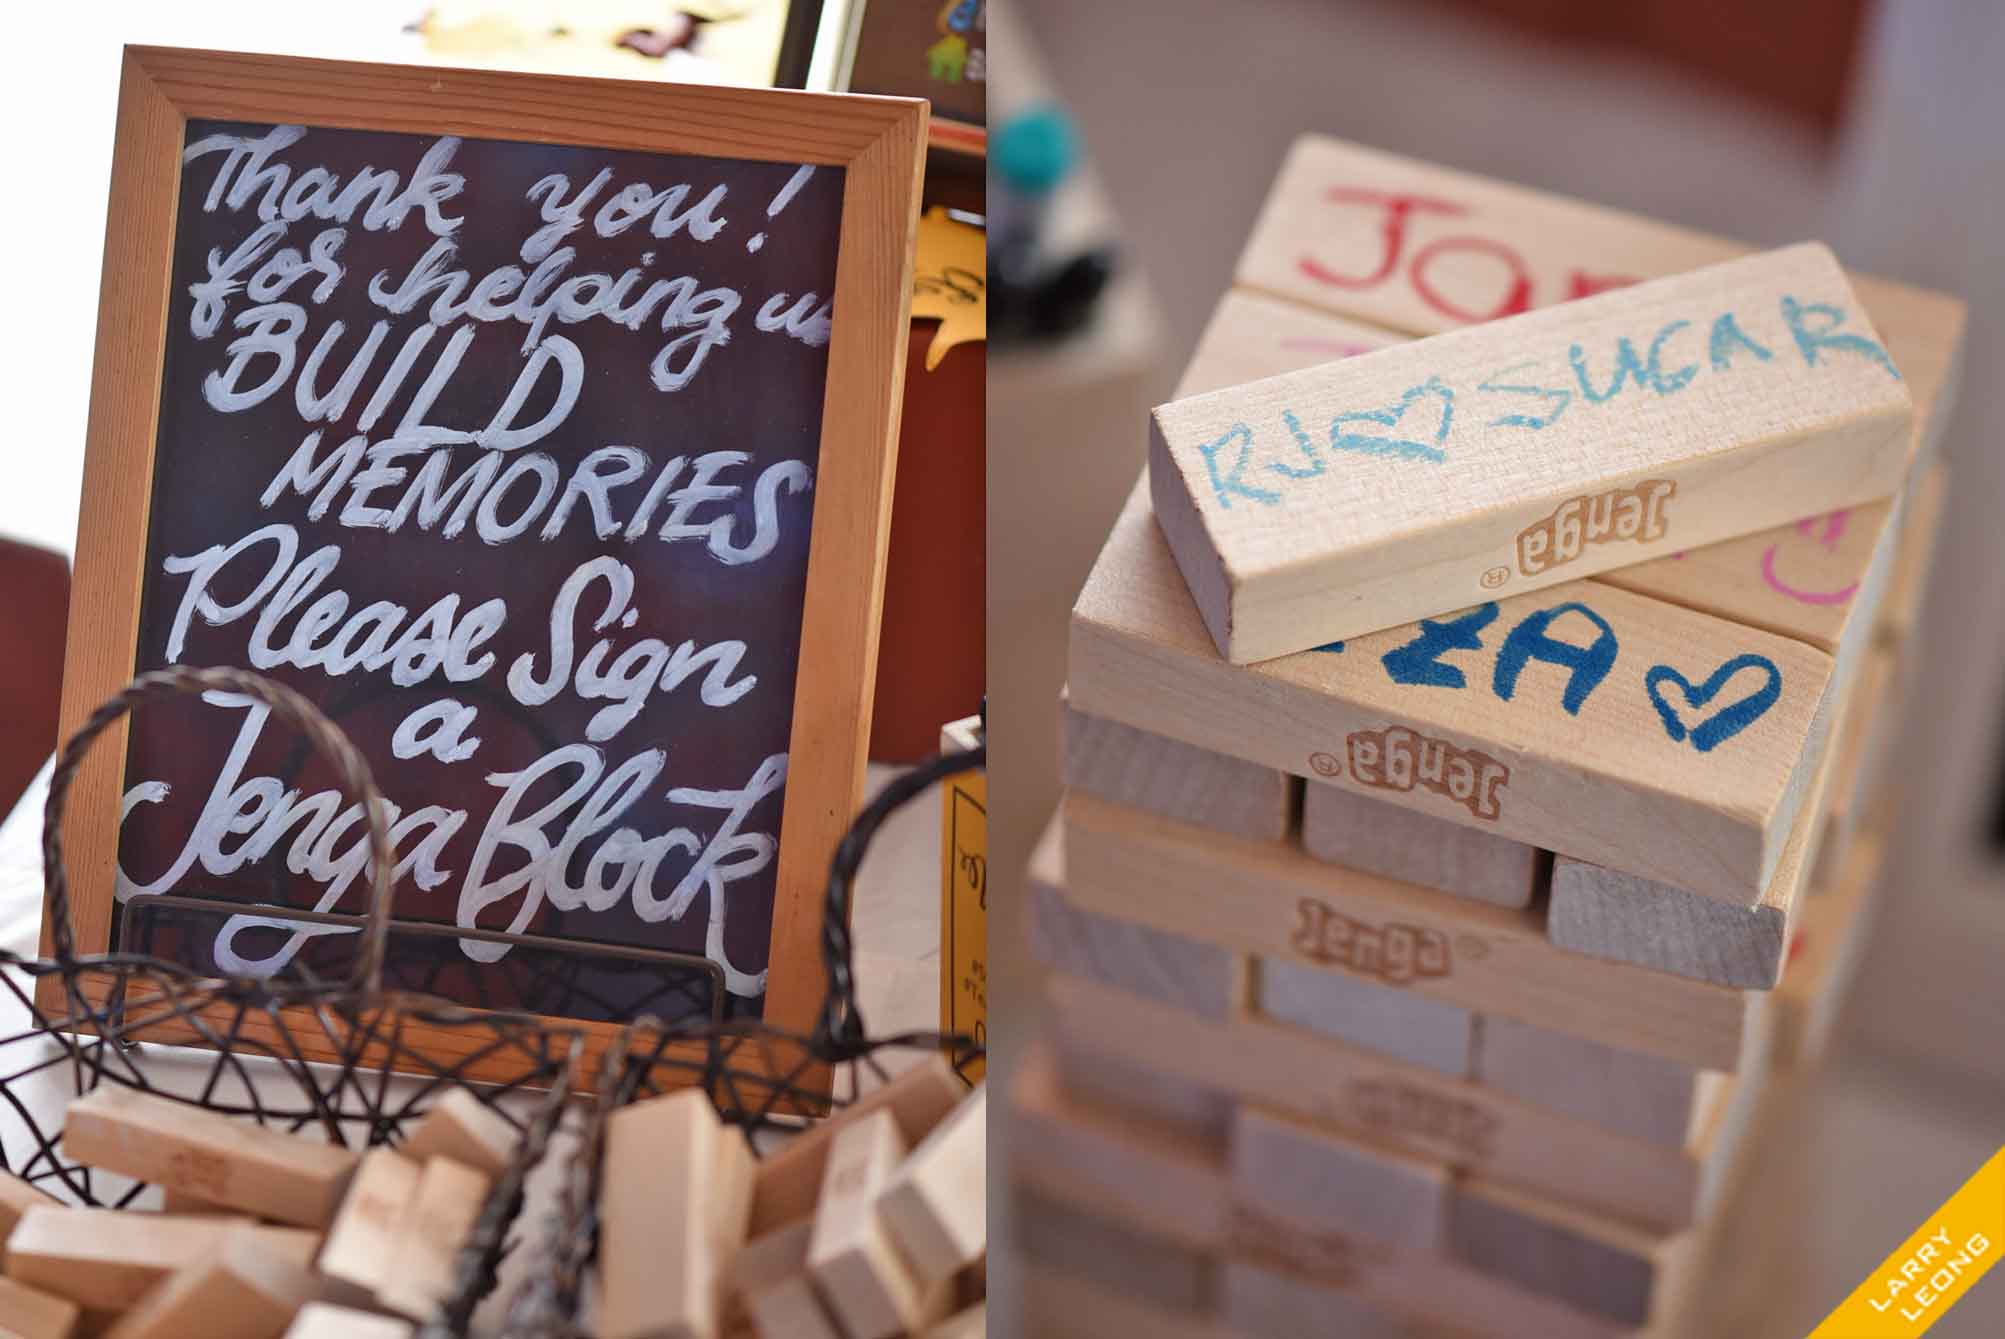 Thank you!
for helping us
BUILD
MEMORIES
Please Sign
a
Jenga Block
RJ♡SUGAR
Jenga®
ZA♡
Jenga®
Jenga
LARRY
LEONG